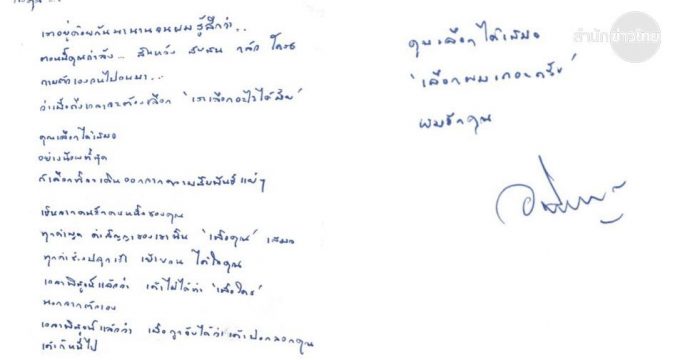 เราอยู่ด้วยกันมานานจนผมรู้สึกว่า..
ตอนนี้คุณกำลัง... สิ้นหวัง สับสน
ถามตัวเองวนไปวนมา...
ว่าเมื่อถึงเวลาจะต้องเลือก 'เราเลือกอะไรได้มั้ย'
คุณเลือกได้เสมอ
อย่างน้อยที่สุด
ก็เลือกที่จะเดินออกจากความสัมพันธ์แย่ๆ
เริ่มจากคนรักคนหนึ่งของคุณ
ทุกคำพูด คำสัญญาของเขานั้น 'เพื่อคุณ' เสมอ
เวลาพิสูจน์แล้วว่า เค้าไม่ได้ทำ 'เพื่อใคร'
นอกจากตัวเอง
เวลาพิสูจน์แล้วว่า เมื่อถูกจับได้ว่าเค้าปอกลอกคุณ
คุณเลือกได้เสมอ
'เลือกผมเถอะครับ'
ผมรักคุณ
สำนักข่าวไทย